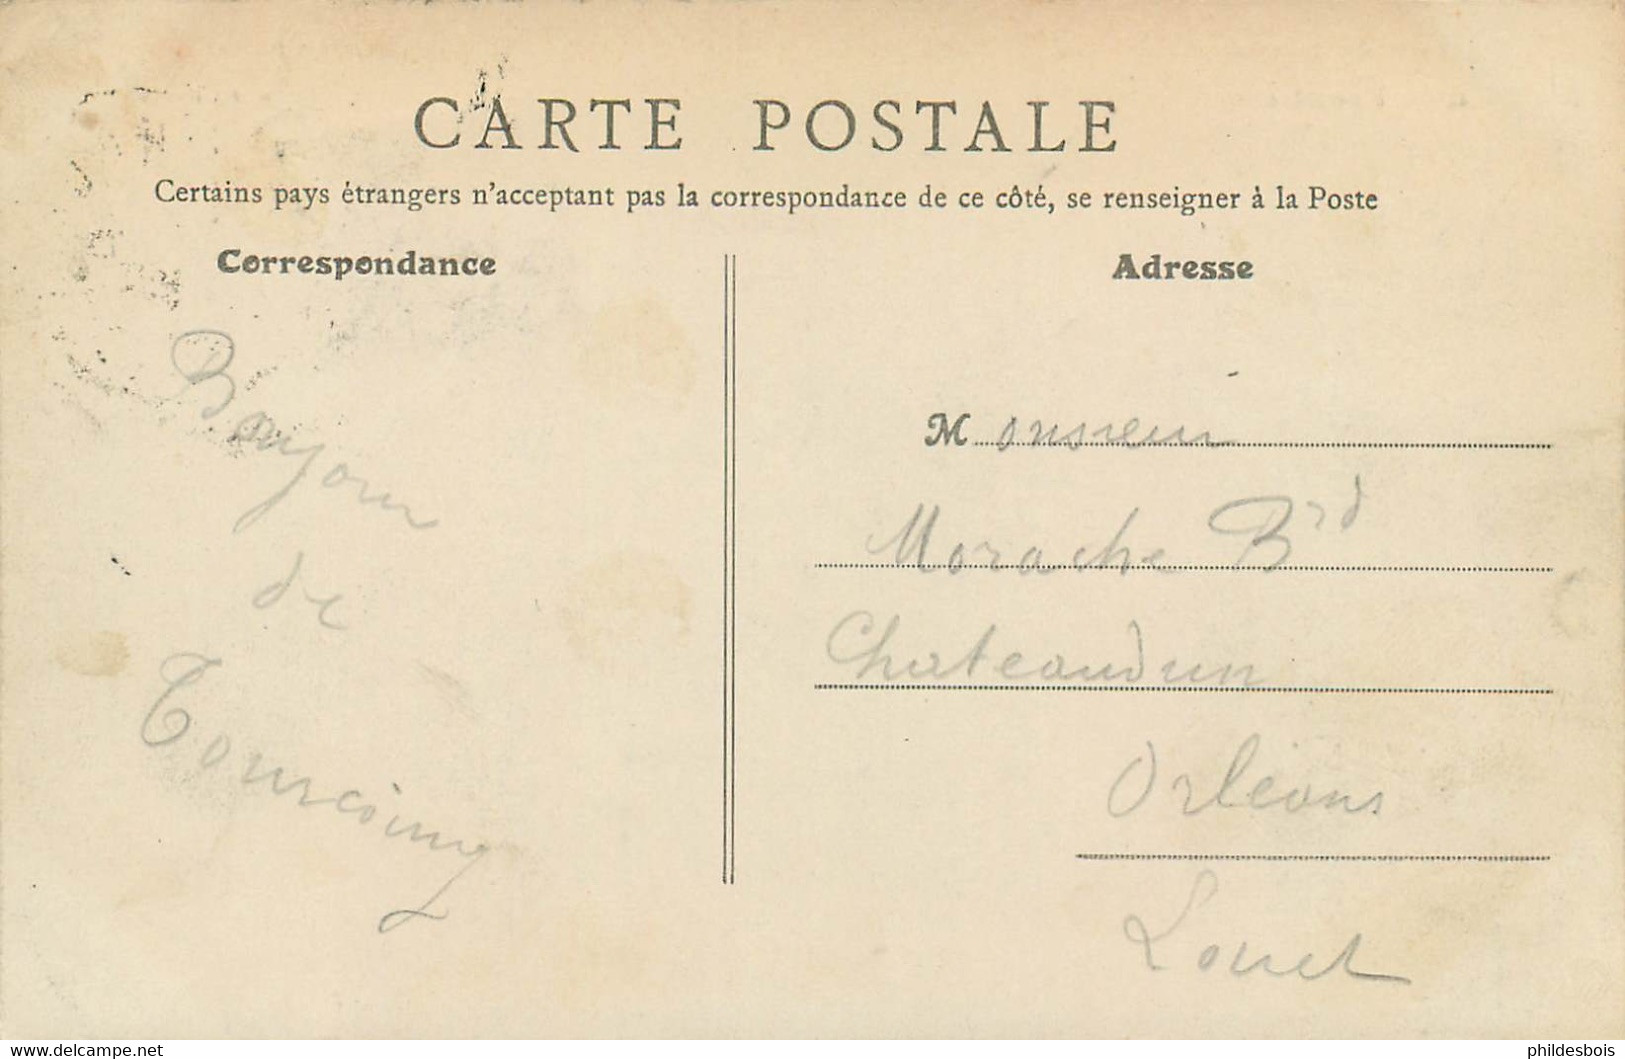 CARTE POSTALE
Certains pays étrangers n'acceptant pas la correspondance de ce côté, se renseigner à la Poste
Correspondance
Bonjour
de
Tourcoing
Adresse
Monsieur
Morache Brd
Chateaudun
Orléans
Loiret
delcampe.net
phildesbois